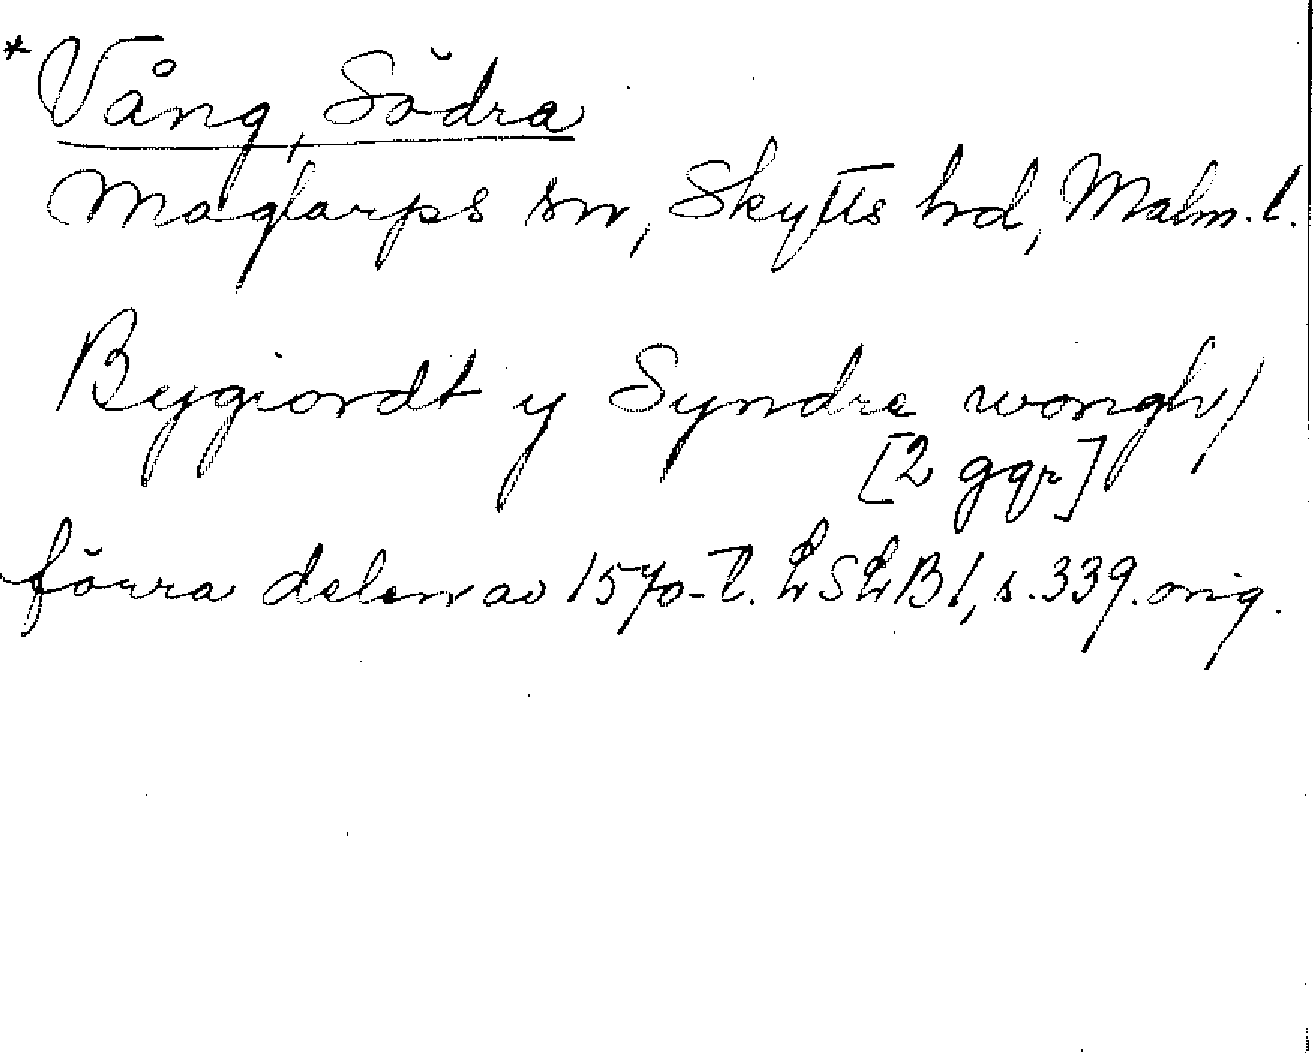 *Vång, Södra
Maglarps sn, Skytts hd, Malm. l.
Bygiordt y Syndre wongh/
[2 ggr]
förra delen av 1570-t. LSLB1, s. 339. orig.